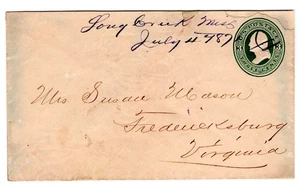 Long Creek Miss
July 4 187
Mrs Susan Mason
Fredericksburg
Virginia